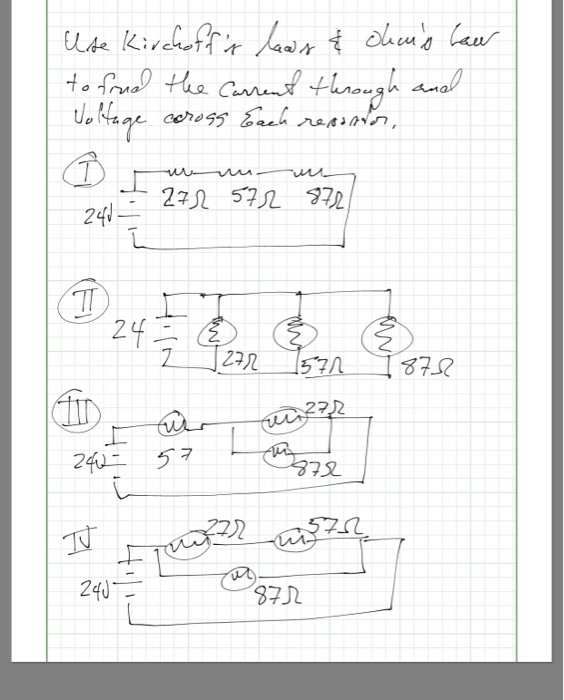 Use Kirchoff's laws & Ohm's Law
to find the current through and
Voltage across Each resistor.
I
24V 27Ω 57Ω 87Ω
II
24
27Ω 57Ω 87Ω
III
27Ω
24V 57
87Ω
IV 27Ω 57Ω
24V 87Ω